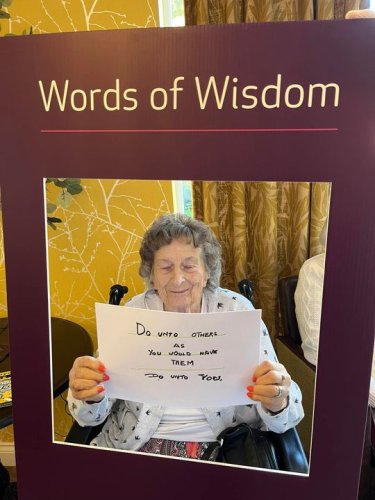 Words of Wisdom
DO UNTO OTHERS
AS
YOU WOULD HAVE
THEM
DO UNTO YOU.